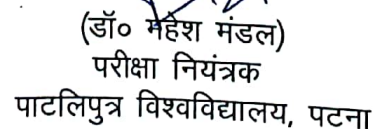 (डॉ० महेश मंडल)
परीक्षा नियंत्रक
पाटलिपुत्र विश्वविद्यालय, पटना